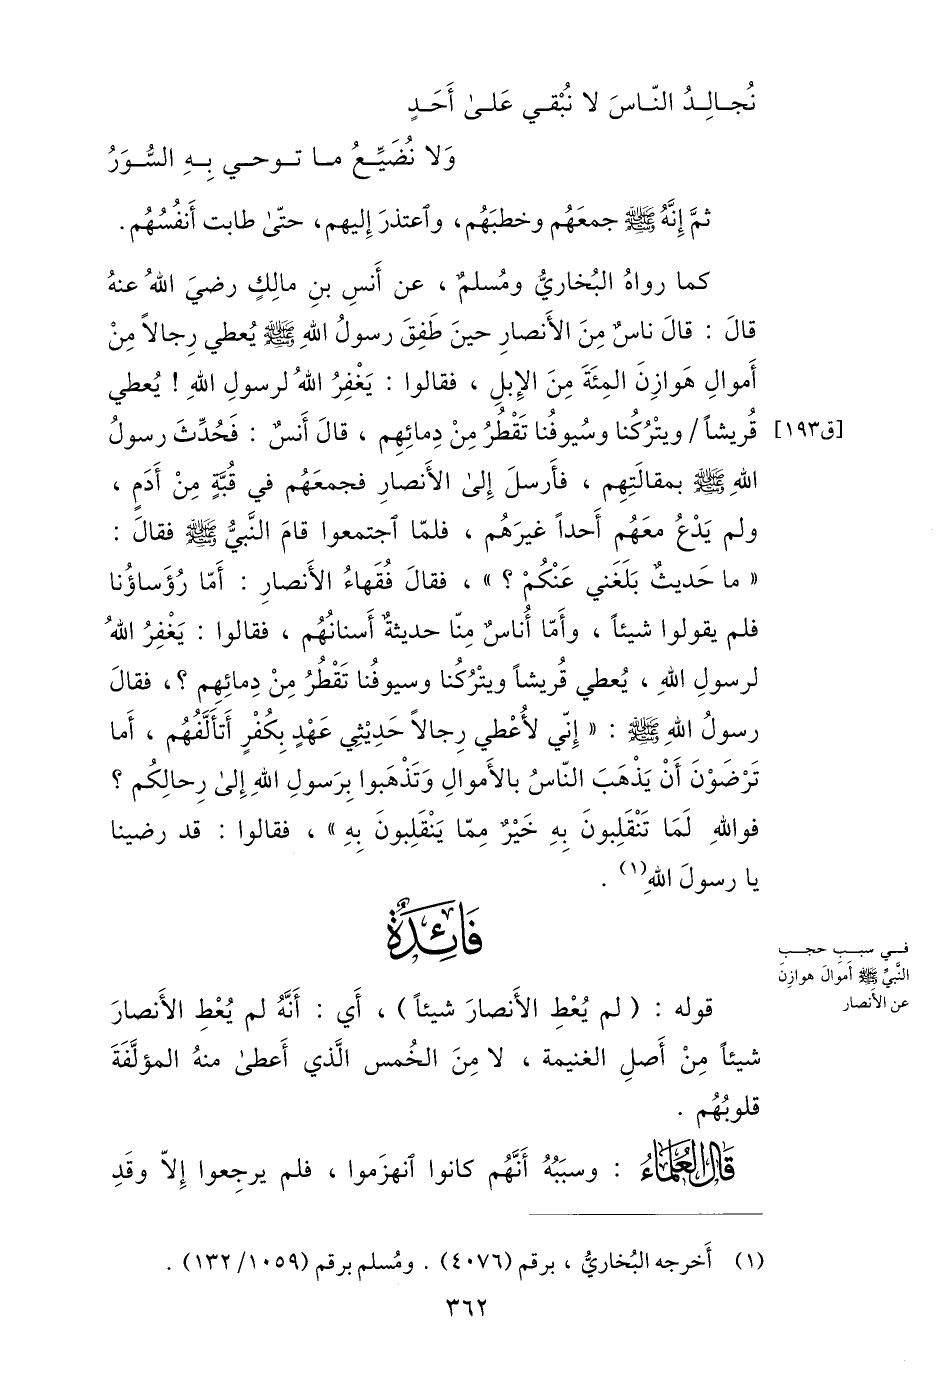 نُجـالِـدُ النّـاسَ لا نُبْقـي عَلـىٰ أَحَـدٍ
وَلا نُضَيِّـعُ مـا تـوحـي بِـهِ السُّـوَرُ
ثمَّ إِنَّهُ ﷺ جمعَهُم وخطبَهُم، وٱعتذرَ إِليهم، حتّىٰ طابت أَنفُسُهُم.
كما رواهُ البُخاريُّ ومُسلمٌ ، عن أَنسِ بنِ مالِكٍ رضيَ اللهُ عنهُ
قالَ : قالَ ناسٌ مِنَ الأَنصارِ حينَ طَفِقَ رسولُ اللهِ ﷺ يُعطي رِجالاً مِنْ
أَموالِ هَوازِنَ المِئَةَ مِنَ الإِبلِ ، فقالوا : يَغْفِرُ اللهُ لرسولِ اللهِ ! يُعطي
قُريشاً/ ويتْرُكُنا وسُيوفُنا تَقْطُرُ مِنْ دِمائِهِم ، قالَ أَنسٌ : فَحُدِّثَ رسولُ [ق١٩٣]
اللهِ ﷺ بمقالَتِهِم ، فأَرسلَ إِلىٰ الأَنصارِ فجمعَهُم في قُبَّةٍ مِنْ أَدَمٍ ،
ولم يَدْعُ معَهُم أَحداً غيرَهُم ، فلمّا ٱجتمعوا قامَ النَّبيُّ ﷺ فقالَ :
« ما حَديثٌ بَلَغَني عَنْكُمْ ؟ » ، فقالَ فُقَهاءُ الأَنصارِ : أَمّا رُؤَساؤُنا
فلم يقولوا شيئاً ، وأَمّا أُناسٌ مِنّا حديثةٌ أَسنانُهُم ، فقالوا : يَغْفِرُ اللهُ
لرسولِ اللهِ ، يُعطي قُريشاً ويتْرُكُنا وسيوفُنا تَقْطُرُ مِنْ دِمائِهِم ؟، فقالَ
رسولُ اللهِ ﷺ : « إِنّي لأُعْطي رِجالاً حَديْثِي عَهْدٍ بِكُفْرٍ أَتأَلَّفُهُم ، أَما
تَرْضَوْنَ أَنْ يَذْهَبَ النّاسُ بالأَموالِ وَتَذْهَبوا بِرَسولِ اللهِ إِلىٰ رِحالِكُم ؟
فواللهِ لَما تَنْقَلِبونَ بِهِ خَيْرٌ مِمّا يَنْقَلِبونَ بِهِ » ، فقالوا : قد رضينا
يا رسولَ اللهِ(١) .
فَائِدَةٌ
في سبب حجب
النَّبيِّ ﷺ أموالَ هوازِنَ
عن الأنصار
قوله : ( لم يُعْطِ الأَنصارَ شيئاً ) ، أَي : أَنَّهُ لم يُعْطِ الأَنصارَ
شيئاً مِنْ أَصلِ الغنيمة ، لا مِنَ الخُمس الَّذي أَعطىٰ منهُ المؤلَّفَةَ
قلوبُهُم .
قَالَ العُلَمَاءُ : وسببُهُ أَنَّهُم كانوا ٱنهزَموا ، فلم يرجِعوا إِلاّ وقَدِ
(١) أَخرجه البُخاريُّ ، برقم (٤٠٧٦) . ومُسلم برقم (١٣٢/١٠٥٩) .
٣٦٢